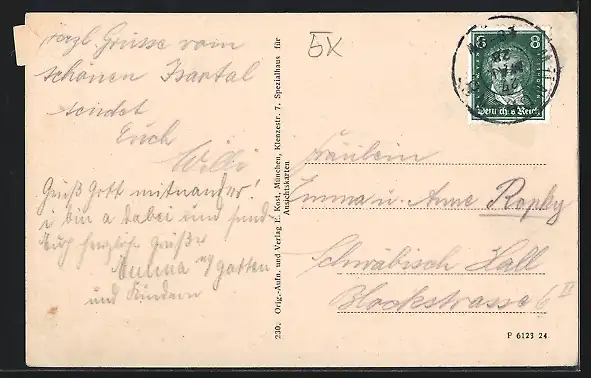 Herzl. Grüsse vom
schönen Isartal
sendet
Euch
Willi
Grüß Gott mitnander!
i bin a dabei und send
Euch herzlich Grüße
Emma
und Kindern
5x
230. Orig.-Aufn. und Verlag E. Kost, München, Klenzestr. 7. Spezialhaus für
Ansichtskarten
8 8
Deutsches Reich
Fräulein
Emma u. Anne Ropby
Schwäbisch Hall
Blockstrasse 6 II
P 6123 24